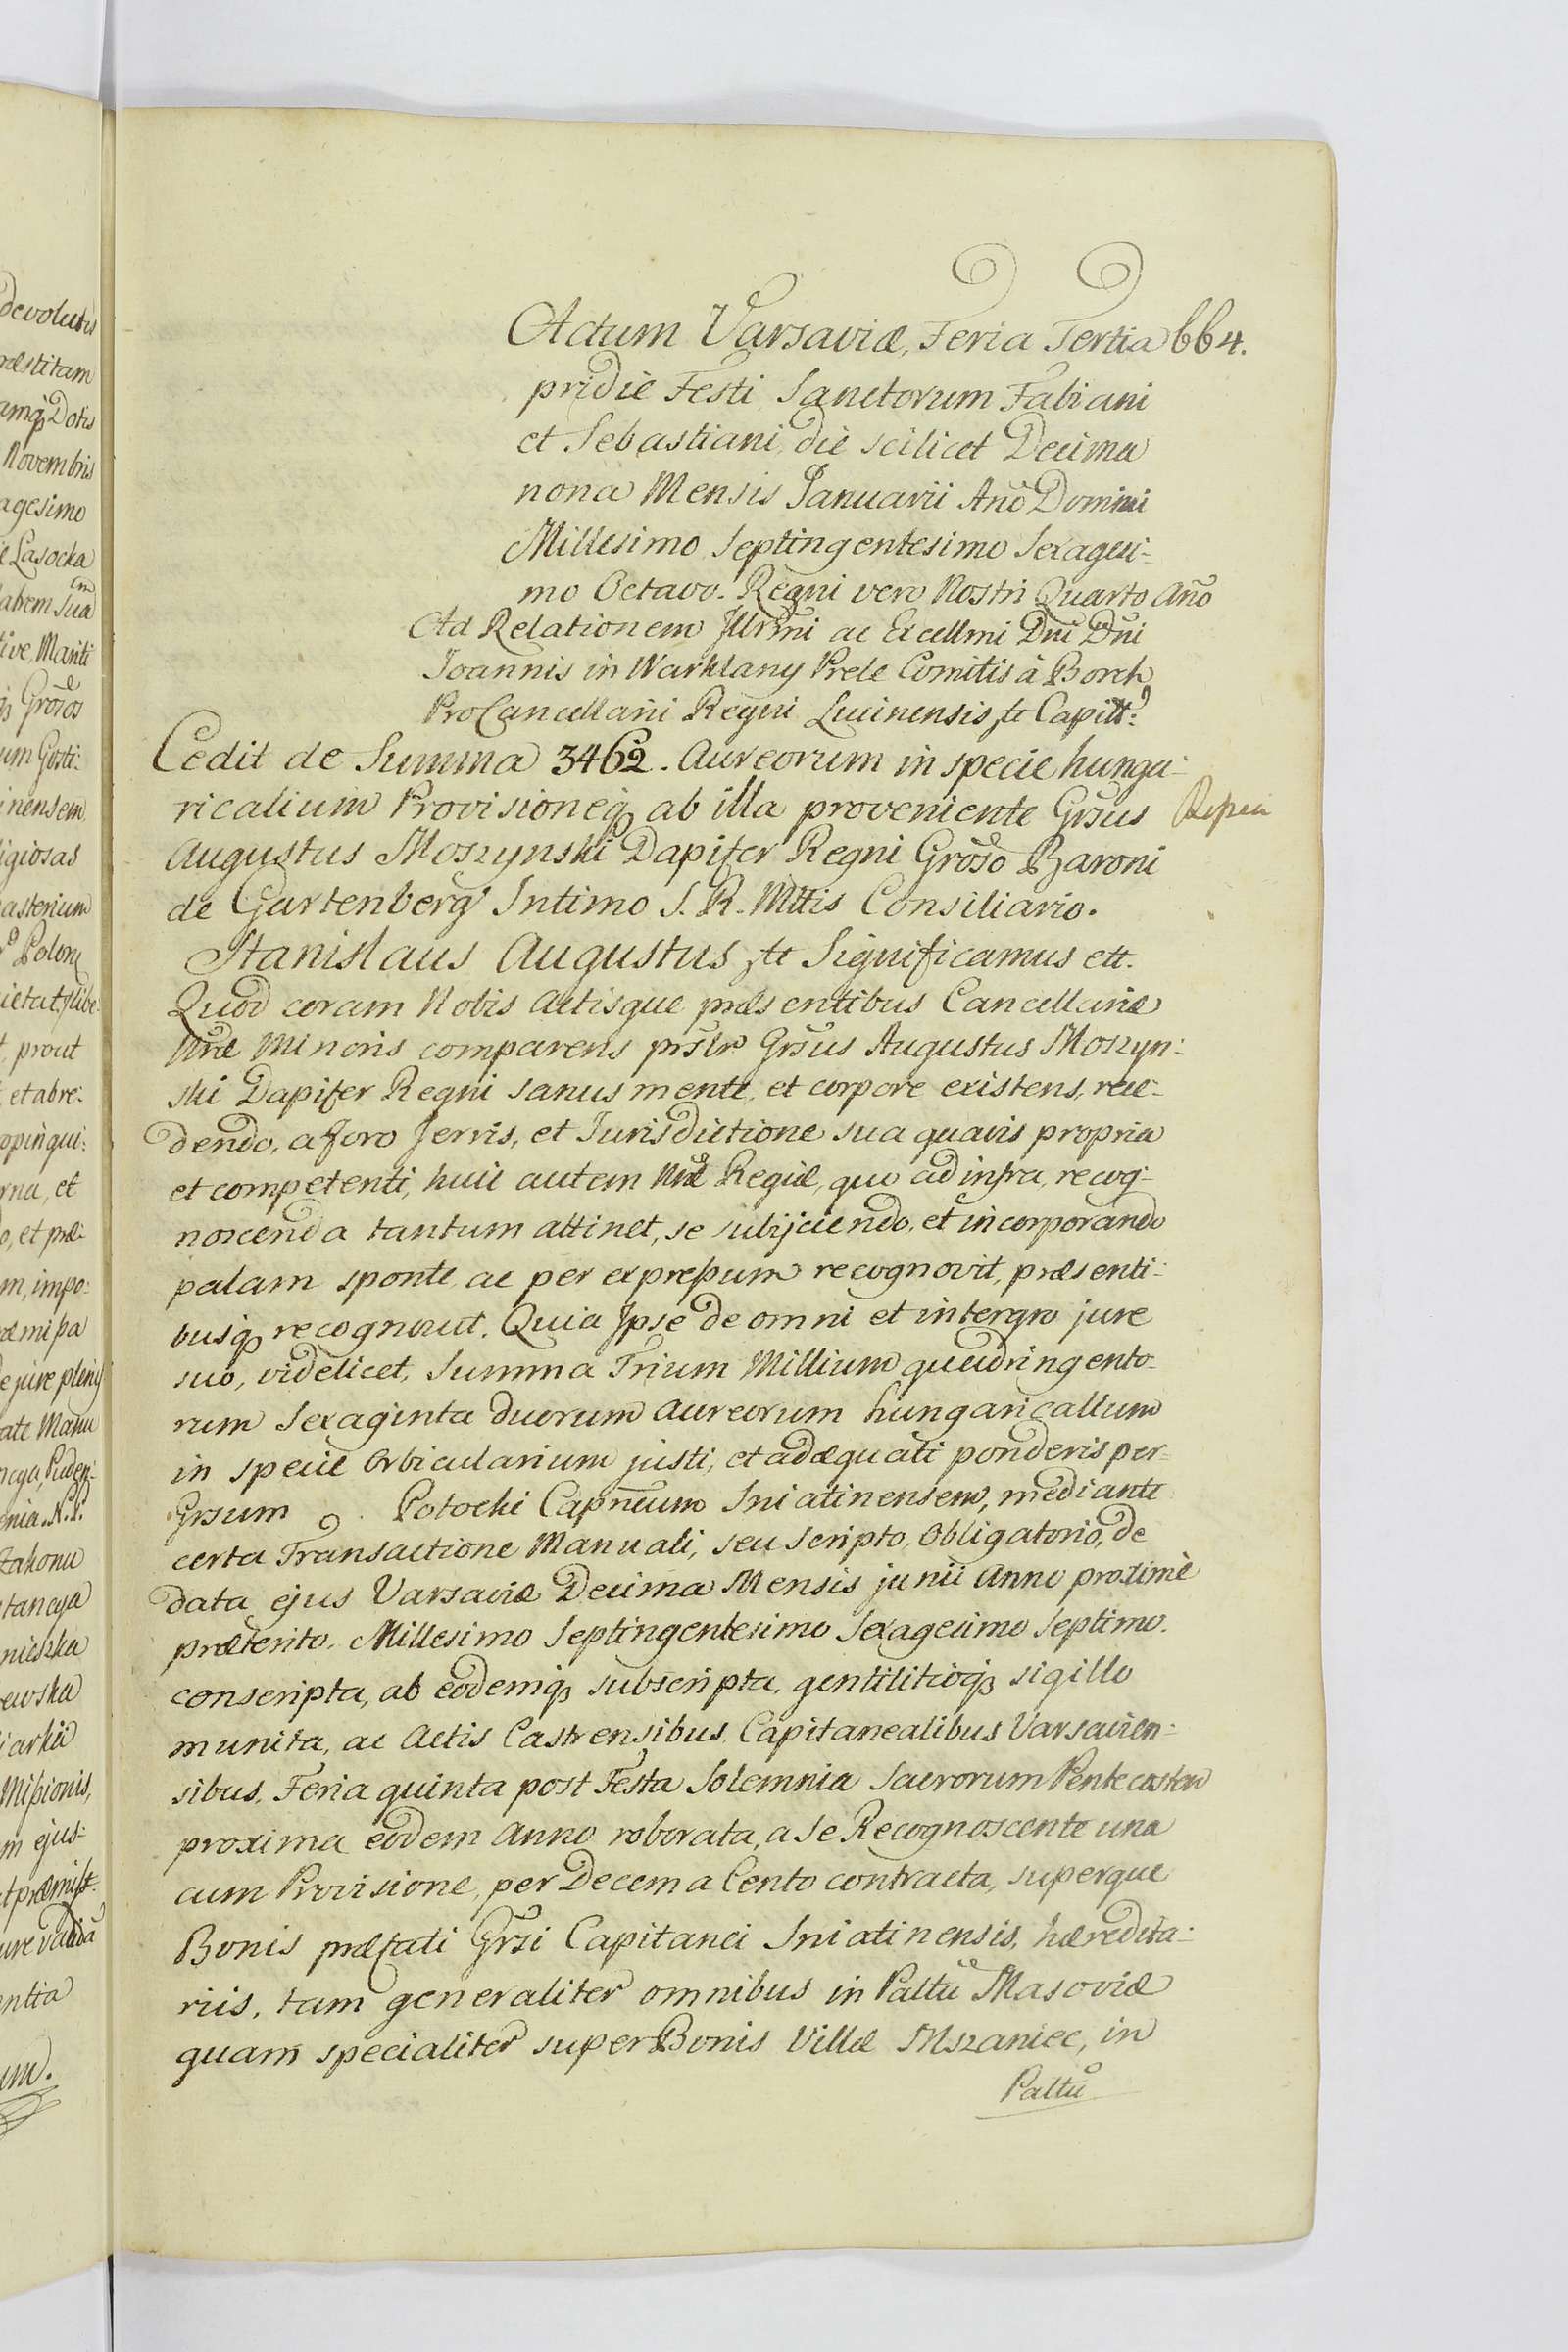 devolutis
ræstitam
amq́ Dotis
Novembris
agesimo
e Lasocka
labrem Sua
tive Mariti
Grosos
um Gosti:
inensem
igiosas
asterium
Polonæ
prout
et abre:
opinqui:
rna, et
o, et præ:
m, impo:
æmissa
e jure pleniq
ate Manu
ncya, Puden:
enia. N. P.
Zakonu
tancya
nieszka
ewska
iarkii
Missionis,
m ejus:
ure valida
entia
um.
Actum Varsaviæ, Feria Tertia 664.
pridie Festi Sanctorum Fabiani
et Sebastiani, die scilicet Decima
nona Mensis Januarii Año Domini
Millesimo Septingentesimo Sexagesi-
mo Octavo. Regni vero Nostri Quarto Año
Ad Relationem Jllrmi ac Excellmi Dni Dni
Joannis in Warklany Prele Comitis à Borch
ProCancellarii Regni Lucinensis etc Capitt:
Cedit de Summa 3462. Aureorum in specie hunga-
ricalium Provisioneq́ ab illa proveniente Grsus
Augustus Moszynski Dapifer Regni Groso Baroni
de Gartenberg Intimo S. R. Mttis Consiliario.
Stanislaus Augustus etc Significamus ett.
Quod coram Nobis Actisque præsentibus Cancellariæ
Nræ Minoris comparens prslr Grsus Augustus Moszyn:
ski Dapifer Regni sanus mente, et corpore existens, rece-
dendo, a foro Jervis, et Jurisdictione sua quavis propria
et competenti, huic autem Nræ Regiæ, quo ad infra, recog-
noscenda tantum attinet, se subijciendo, et incorporando
palam sponte ac per expressum recognovit, præsenti:
busq́ recognoscit. Quia Jpse de omni et intergro jure
suo, videlicet, Summa Trium Millium quadringento-
rum Sexaginta duorum Aureorum hungaricalium
in specie Orbicularium justi, et adæquati ponderis per-
Grsum Potocki Capneum Sniatinensem, mediante
certa Transactione Manuali, seu Scripto Obligatorio, de
data ejus Varsaviæ Decima Mensis junii Anno proximè
præterito. Millesimo Septingentesimo Sexagesimo Septimo.
conscripta, ab eodemq́ subscripta, gentilitioq́ sigillo
munita, ac Actis Castrensibus Capitanealibus Varsavien:
sibus, Feria quinta post Festa Solemnia Sacrorum Pentecosten
proxima eodem Anno roborata, a Se Recognoscente una
cum Provisione, per Decem a Cento contracta, superque
Bonis præfati Grsi Capitanei Sniatinensis, hæredita:
riis, tam generaliter omnibus in Pallttu Masoviæ
quam specialiter super Bonis Villæ Mszaniec, in
Palttu